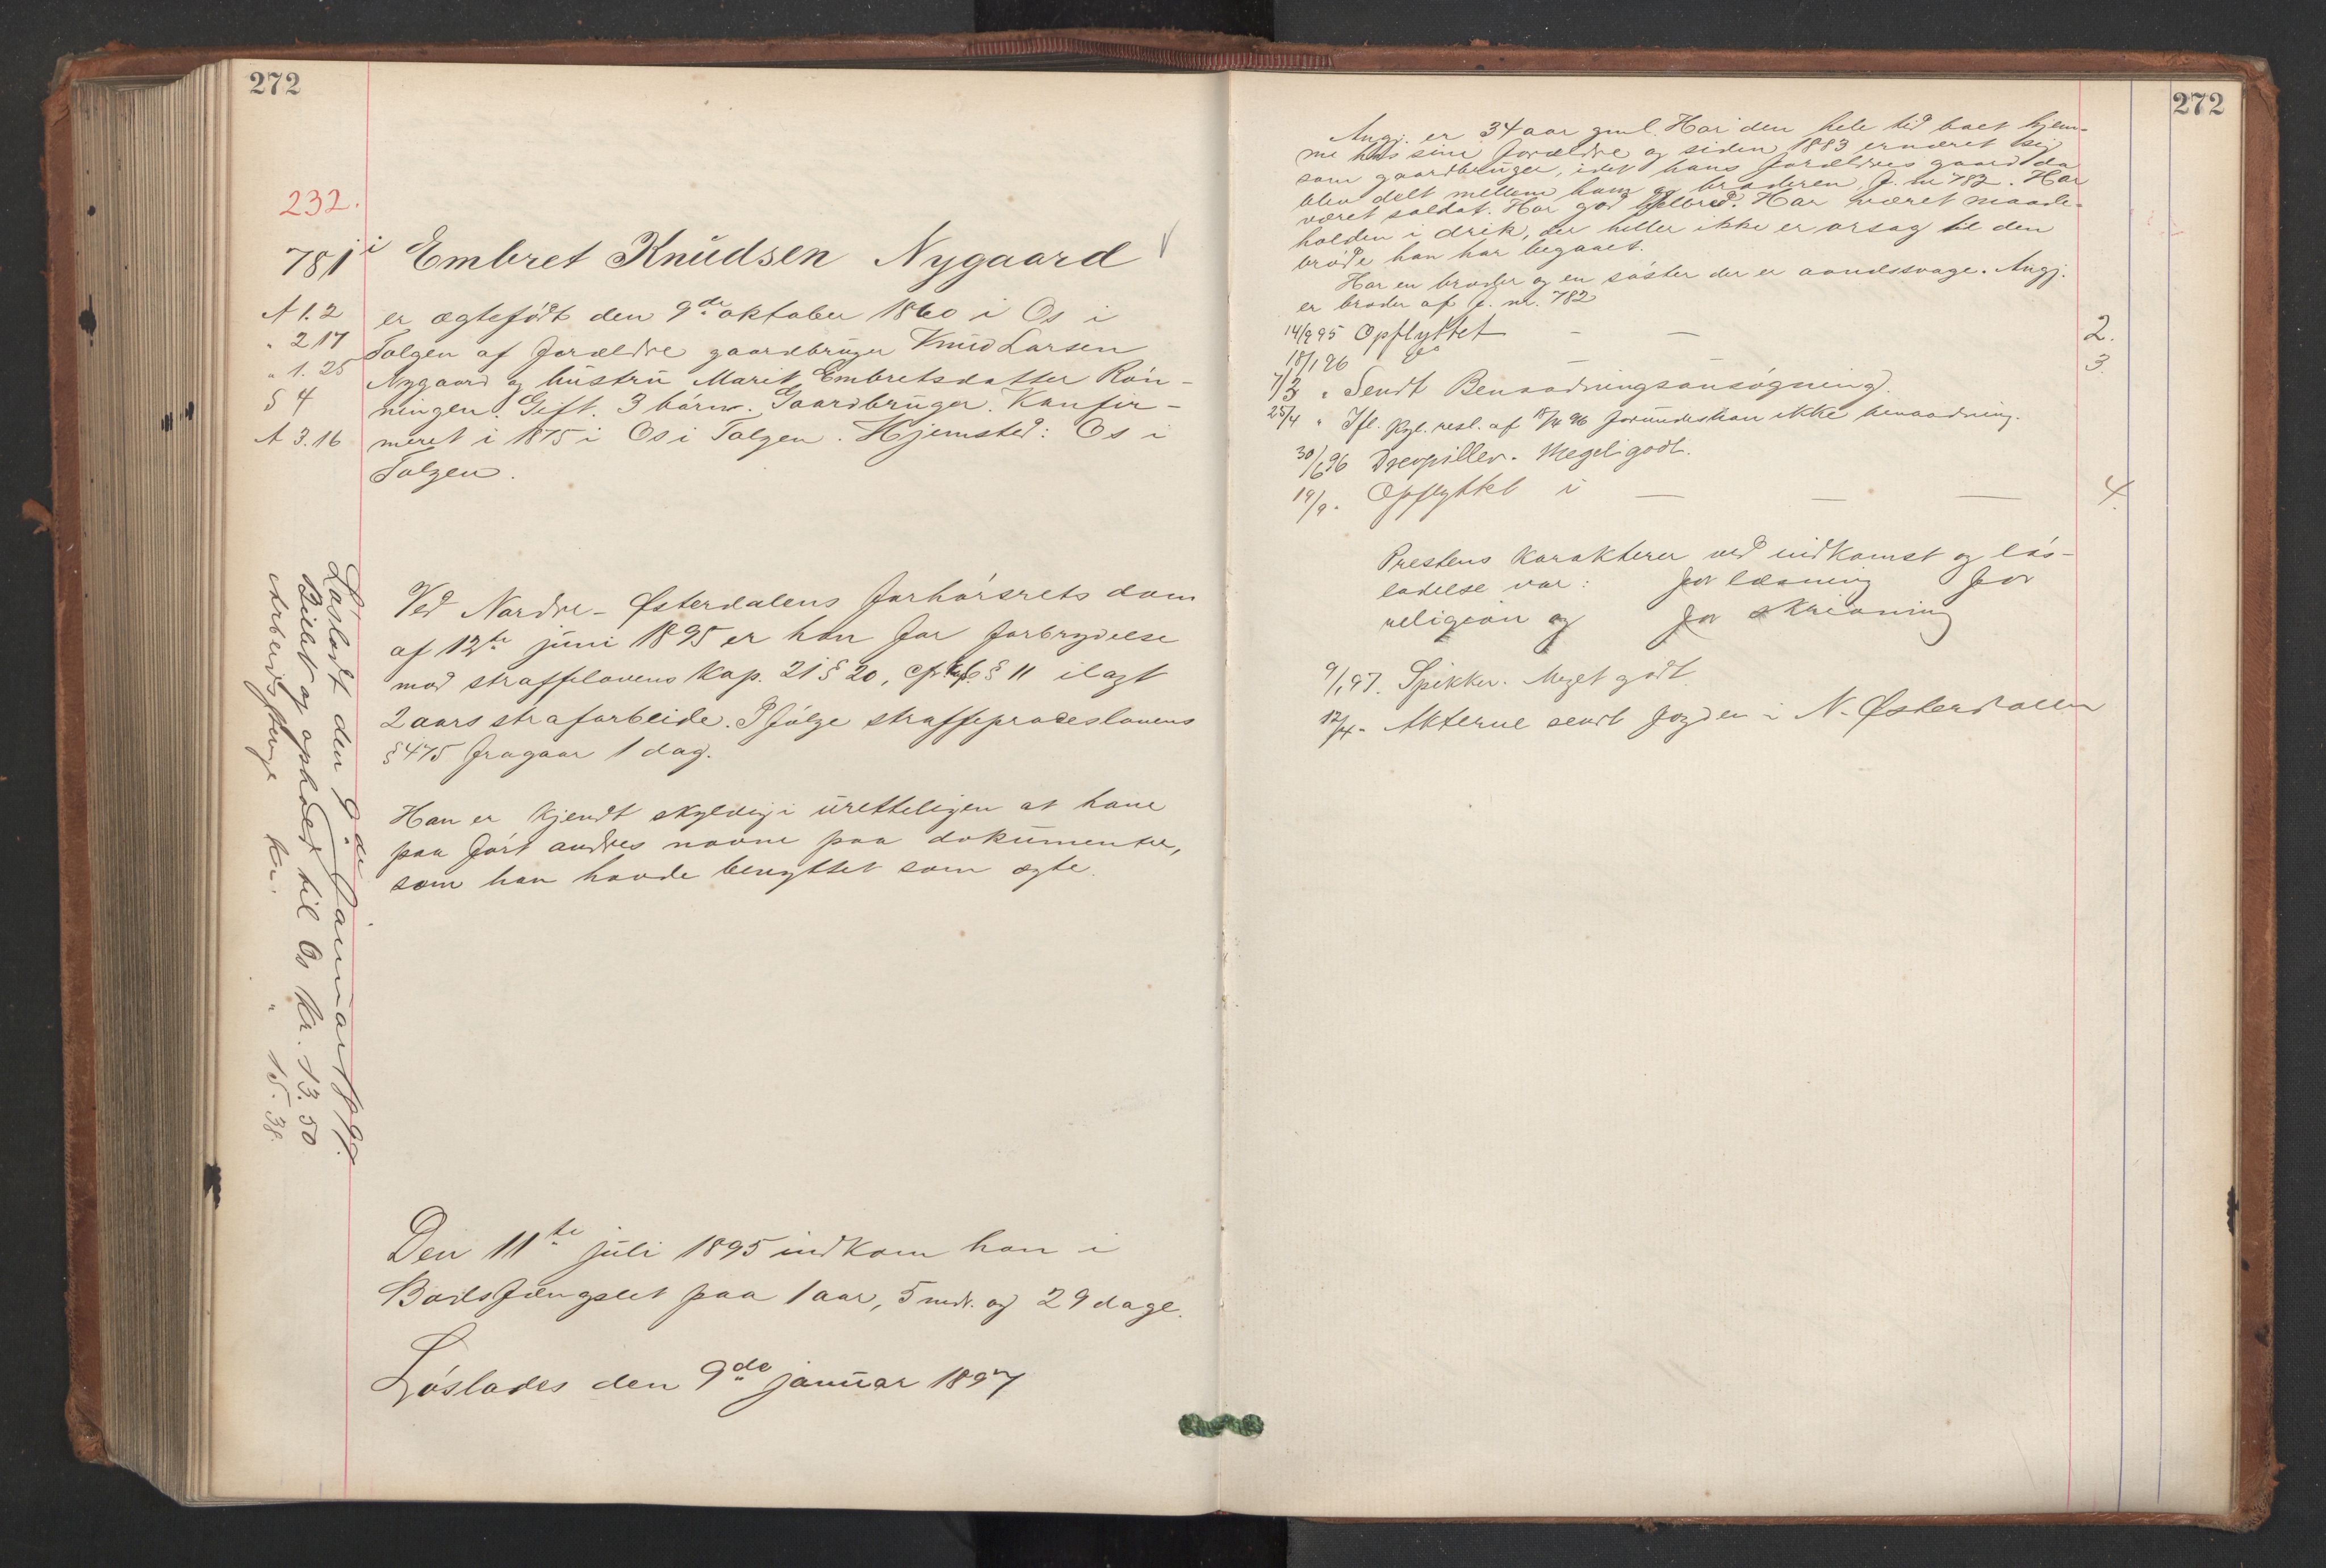 272
232.
781
Embret Knudsen Nygaard
A 1.2
" 2 17
" 1.25
S 4
A 3.16
er ægtefödt den 9de oktober 1860 i Os i
Tolgen af forældre gaardbruger Knud Larsen
Nygaard og hustru Marit Embretsdatter Rön-
ningen. Gift. 3 börn. Gaardbruger. Konfir-
meret i 1875 i Os i Tolgen. Hjemsted: Os i
Tolgen.
Ved Nordre-Østerdalens forhörsrets dom
af 12te juni 1895 er han for forbrydelse
mod straffelovens kap. 21 § 20, cfr kap. 6 § 11 ilagt
2 aars strafarbeide. I fölge straffeproceslovens
§ 475 fragaar 1 dag.
Han er kjendt skyldig i uretteligen at have
paa fört andres navne paa dokumenter,
som han havde benyttet som ægte.
Den 11te juli 1895 indkom han i
Bodsfængslet paa 1 aar, 5 mdr. og 29 dage.
Löslades den 9de januar 1897
Lösladt den 9de januar 97.
Billet og ophold til Os kr. 13.50
Arbeidspenge " 15.38.
272
Angj. er 34 aar gml. Har den hele tid boet hjem-
me hos sine forældre og siden 1883 ernæret sig
som gaardbruger, idet hans forældres gaard da
blev delt mellem ham og broderen, f. nr 782. Har
været soldat. Har god helbred. Har været maade-
holden i drik, der heller ikke er orsag til den
bröde han har begaaet.
Har en broder og en söster der er aandssvage. Angj.
er broder af f. nr. 782
14/9 95 Opflyttet - — 2.
18/1 96 do — 3.
7/3 " Sendt Benaadningsansögning.
25/4 " Ifl. kgl. resl. af 18/4 96 forundes han ikke benaadning.
30/6 96 Drevpiller. Meget godt.
19/9 " Opflyttet i — — — 4.
Prestens karakterer ved indkomst og lös-
ladelse var: for læsning for
religion og for skrivning
9/1 97. Spikker. Meget godt
12/4 " Akterne sendt fogden i N. Østerdalen